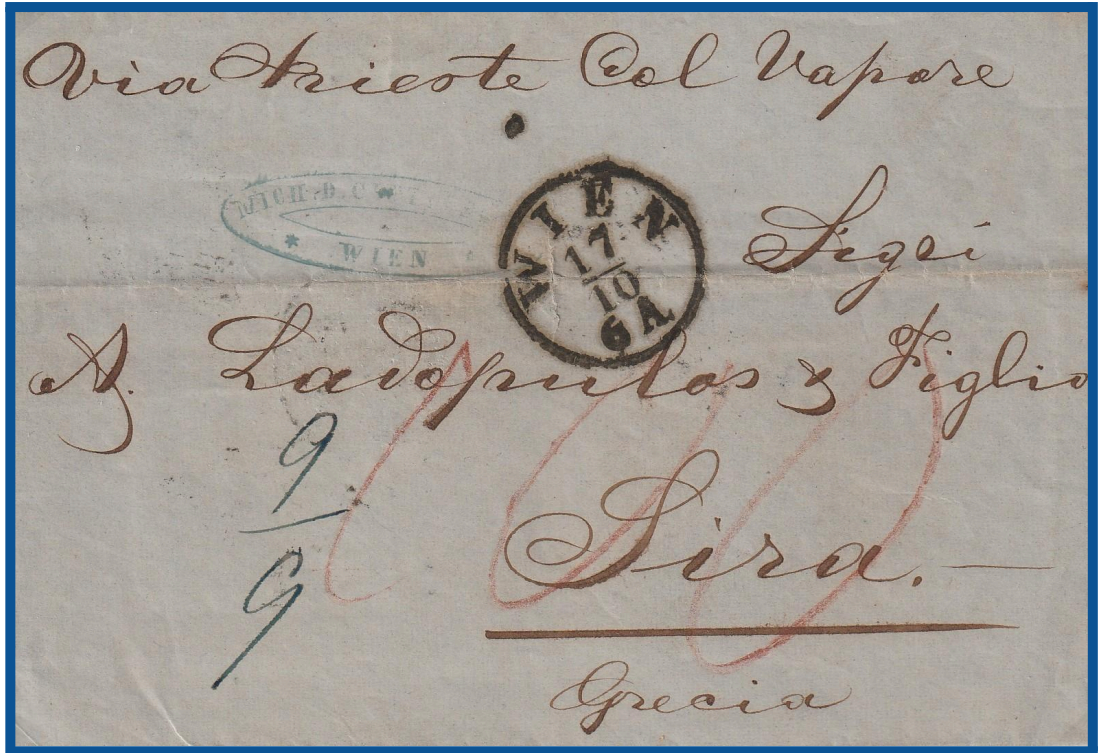 Via Trieste Col Vapore
MICH. D.
* WIEN *
WIEN
17
10
6 A
Sigri
A. Ladopulos & Figlio
9
9
100
Sira.—
Grecia